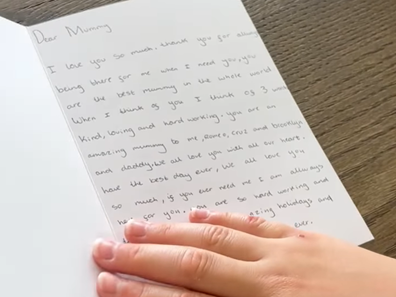 Dear Mummy
I love you so much. thank you for always
being there for me when I need you, you
are the best mummy in the whole world
When I think of you I think of 3 words
Kind, loving and hard working. you are an
amazing mummy to me, Romeo, Cruz and Brooklyn
and daddy. We all love you with all our hearts.
have the best day ever, We all love you
so much, if you ever need me I am always
for you. You are so hard working and
holidays and
ever.